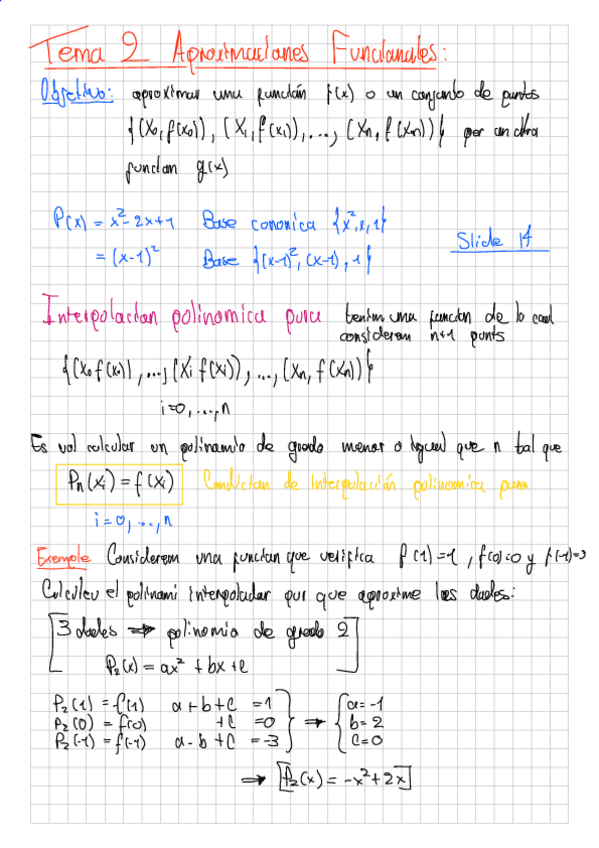 Tema 2 Aproximaciones Funcionales:
Objetivo: aproximar una función f(x) o un conjunto de puntos
{(x₀, f(x₀)), (x₁, f(x₁)), ..., (xₙ, f(xₙ))} por an otra
funcion g(x)
P(x) = x² - 2x + 1 Base cononica {x², x, 1}
= (x-1)² Base {(x-1)², (x-1), 1}
Slide 14
Interpolacion polinomica pura tenim una funcion de la cual
considerem n+1 punts
{(x₀ f(x₀)), ..., (xᵢ f(xᵢ)), ..., (xₙ, f(xₙ))}
i=0, ..., n
Es vol calcular un polinomio de grado menor o igual que n tal que
Pₙ(xᵢ) = f(xᵢ) Condician de interpolación polinomica pura
i=0, ..., n
Exemple Considerem una funcion que verifica f(1)=1, f(0)=0 y f(-1)=-3
Calculeu el polinomi interpolador pur que aproxime les dades:
[3 dades ⇒ polinomio de grado 2
P₂(x) = ax² + bx + c]
P₂(1) = f(1) a+b+c = 1 a=-1
P₂(0) = f(0) +c = 0 ⇒ b=2
P₂(-1) = f(-1) a-b+c = -3 c=0
⇒ [P₂(x) = -x² + 2x]